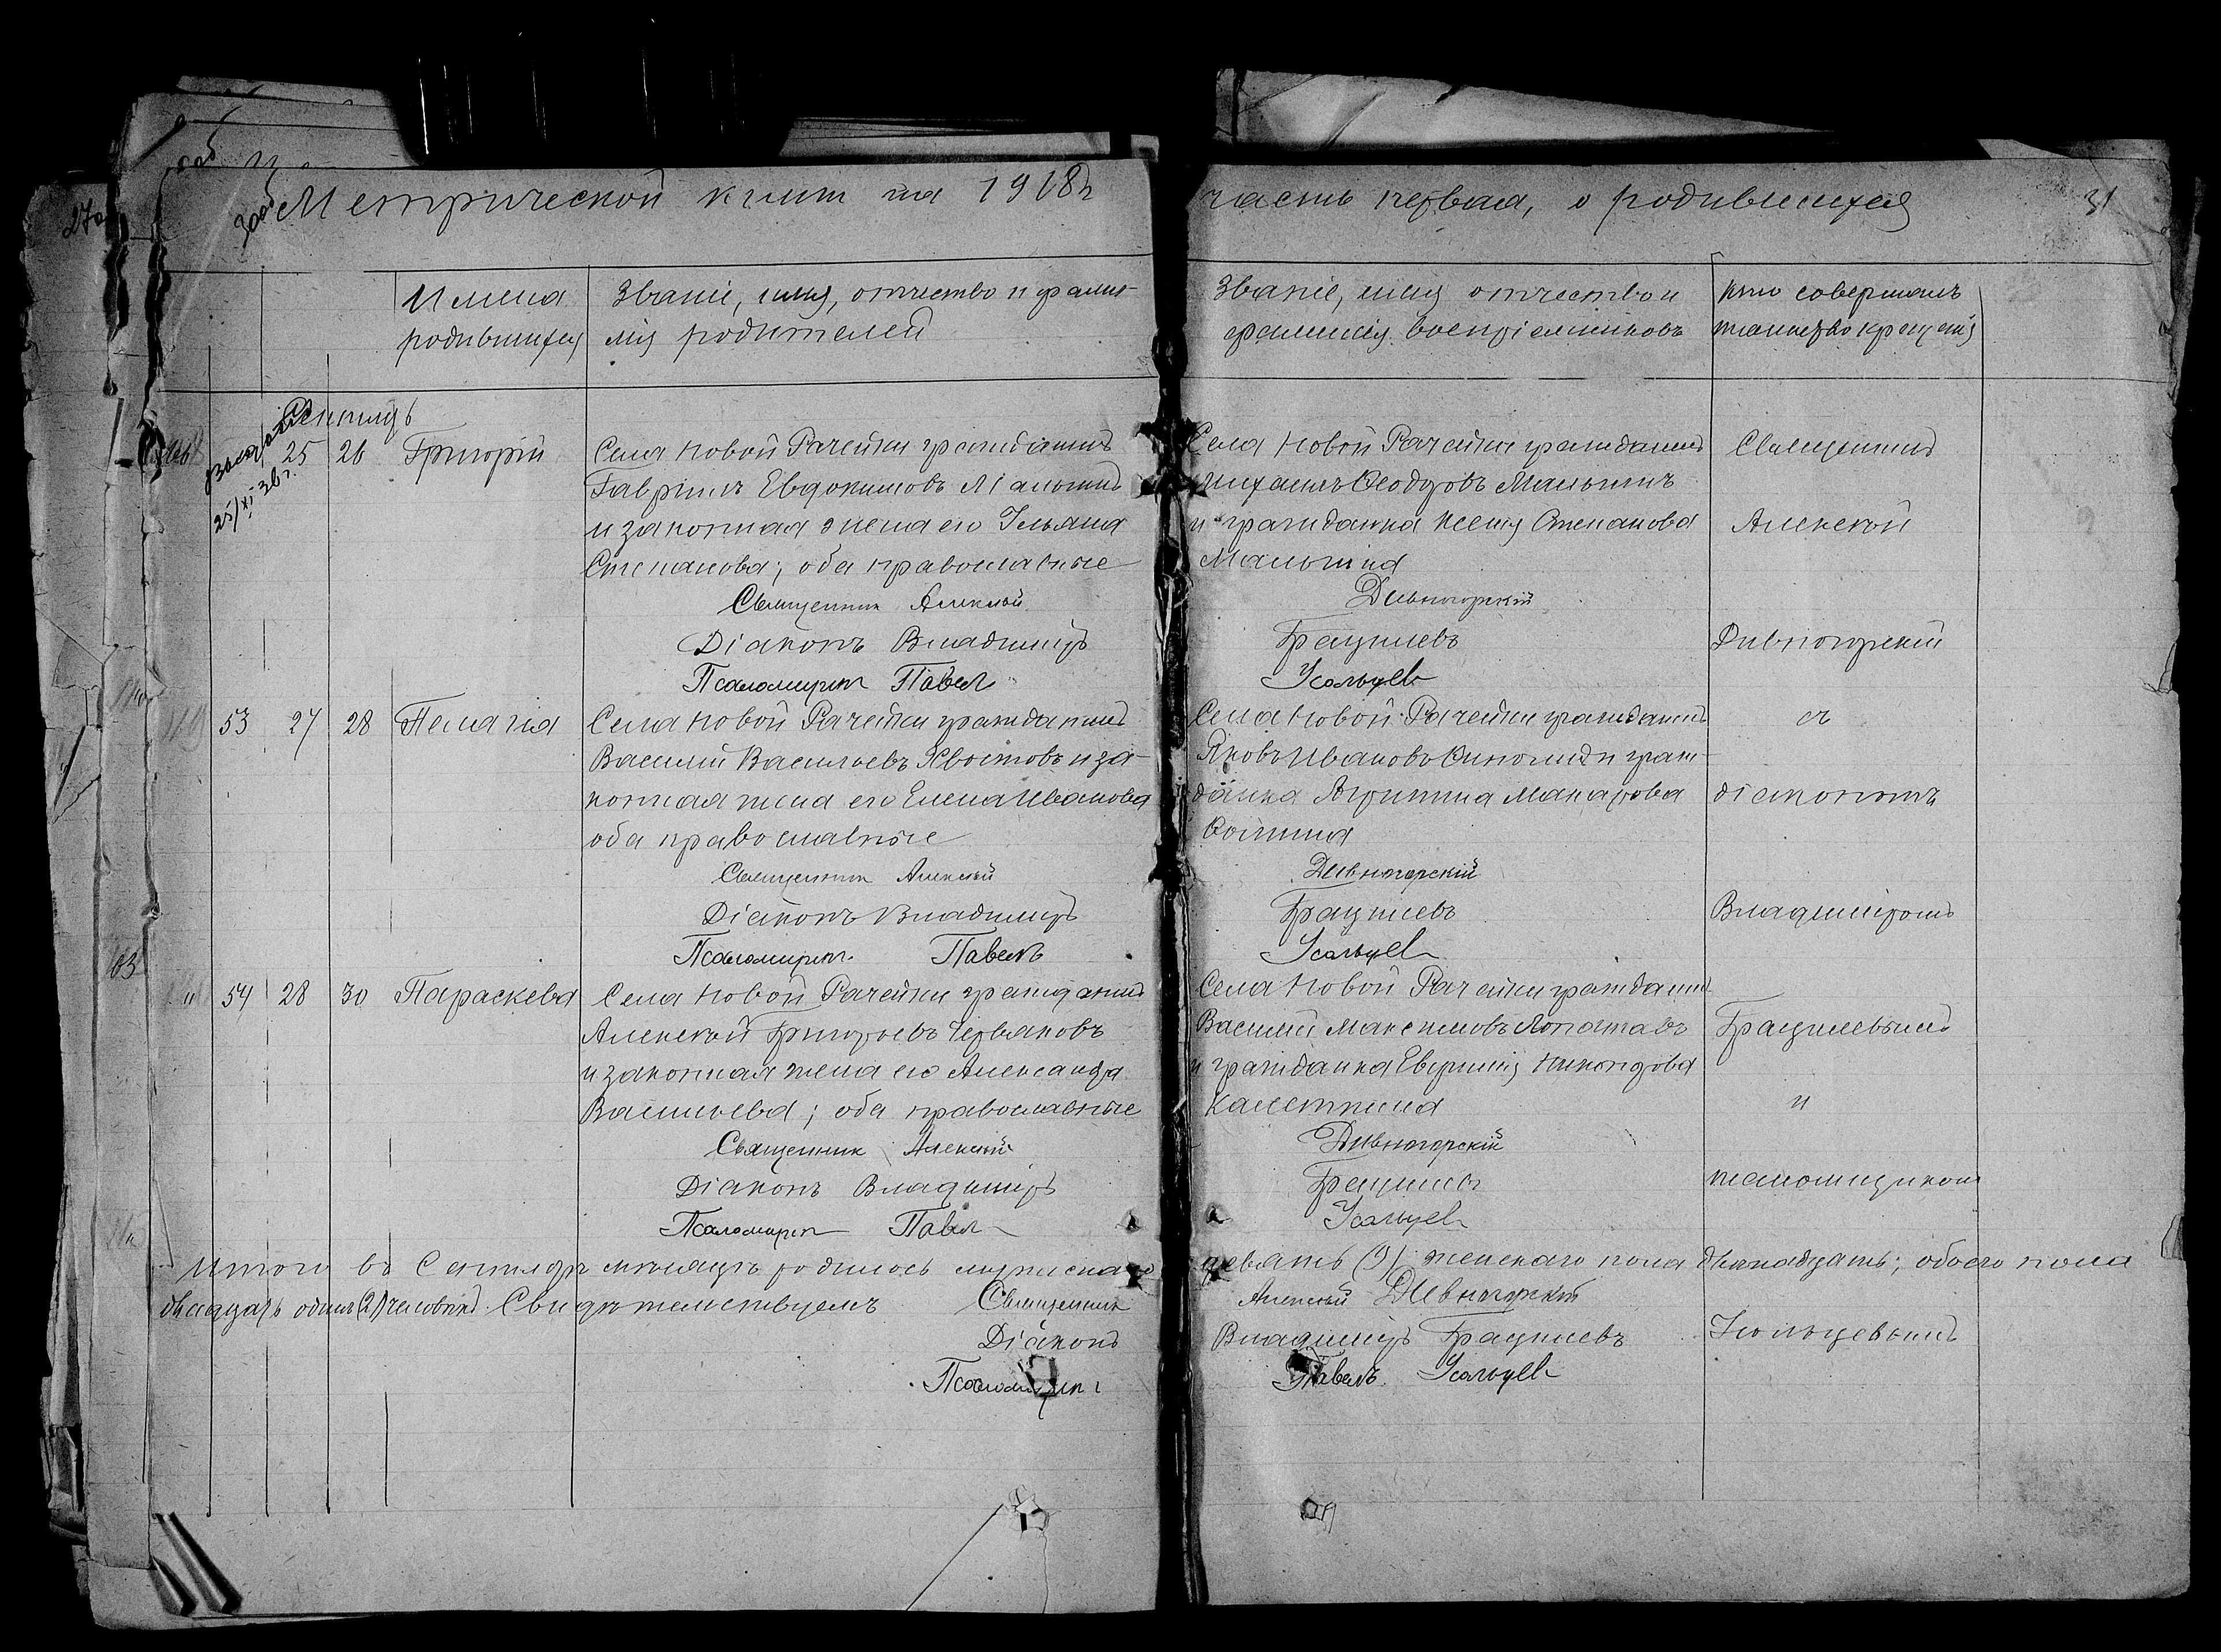 Метрической книги на 1918 г
часть первая, о родившихся
31
Имена
родившихся
Званіе, имя, отчество и фами-
лія родителей
Званіе, имя отчество и
фамилія воспріемниковъ
Кто совершалъ
таинство крещенія
Сентябрь
25 26 Григорій
Села Новой Рачейки гражданинъ
Гавріилъ Евдокимовъ Мальгинъ
и законная жена его Ульяна
Степанова; оба православные
Священник Алексѣй
Діаконъ Владиміръ
Псаломщик Павел
Села Новой Рачейки гражданинъ
Михаилъ Ѳеодоровъ
и гражданка Ксенія Степанова
Дивногорскій
Грациевъ
Усольцев
Священник
Алексѣй
Дивногорскій
53 27 28 Пелагія
Села Новой Рачейки гражданинъ
Василій Васильевъ Хвостовъ и за-
конная жена его Елена Иванова
оба православные
Священник Алексѣй
Діаконъ Владиміръ
Псаломщик Павелъ
Села Новой Рачейки гражданинъ
Яковъ Ивановъ и граж-
данка Макарова
Дивногорскій
Грациевъ
Усольцев
съ
діакономъ
Владиміромъ
54 28 30 Параскева
Села Новой Рачейки гражданинъ
Алексѣй Григорьевъ Червяковъ
и законная жена его Александра
Васильева; оба православные
Священник Алексѣй
Діаконъ Владиміръ
Псаломщик Павел
Села Новой Рачейки гражданинъ
Василій Максимовъ
и гражданка
Дивногорскій
Грациевъ
Усольцев
Грациевымъ
и
псаломщиком
Усольцевымъ
Итого въ Сентябрѣ мѣсяцѣ родилось мужскаго
девять (9) женскаго пола двѣнадцать; обоего пола
двадцать одинъ (21) человѣкъ. Свидѣтельствуемъ
Священник Алексѣй Дивногорскій
Діаконъ Владиміръ Грациевъ
Псаломщик Павелъ Усольцев